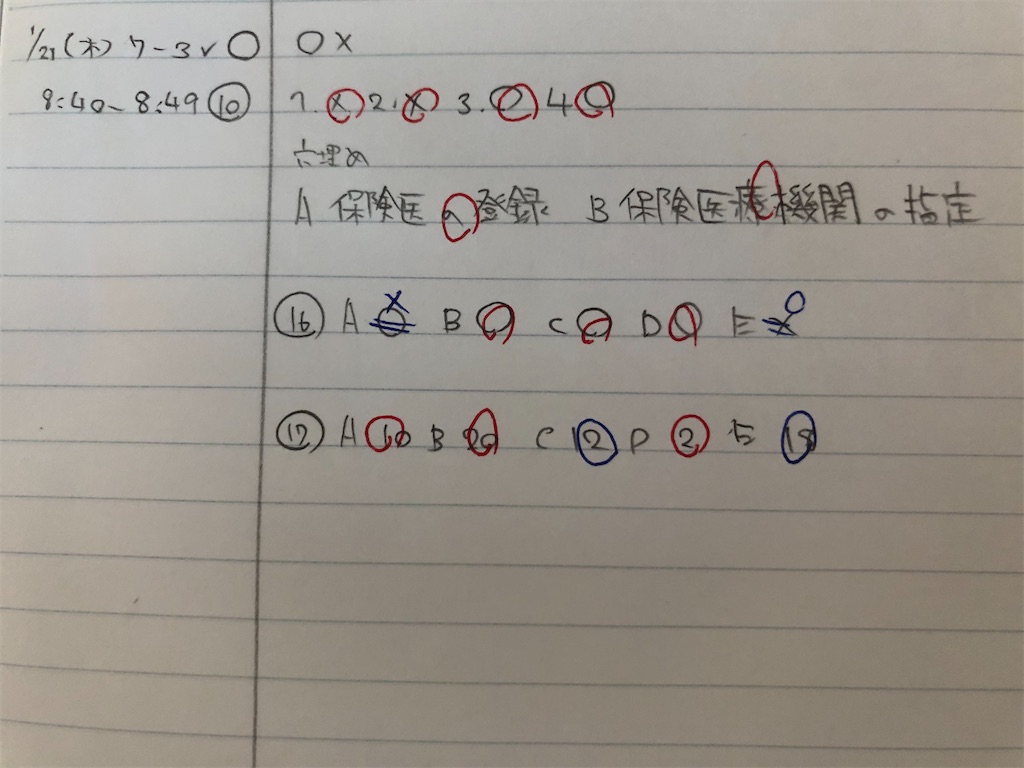 1/21(木) 7-3 ✓ ○ ○×
8:40~8:49 ⑩ 1. × 2. × 3. ○ 4 ○
穴埋め
A 保険医の登録 B 保険医療機関の指定
⑯ A × B ○ C ○ D ○ E ○
⑰ A 10 B 20 C 12 D 2 E 18